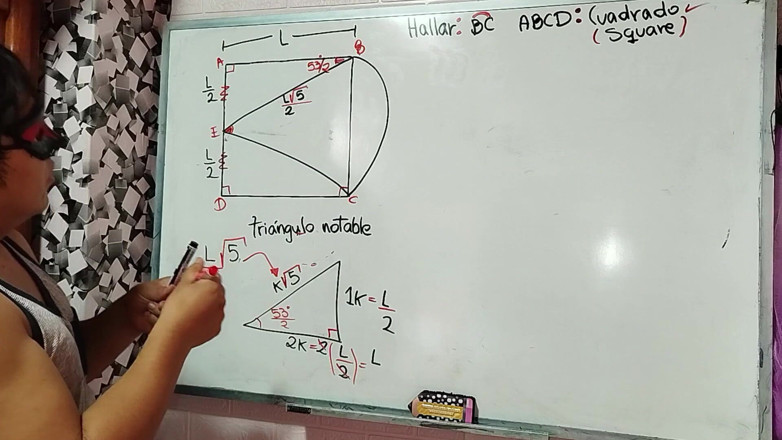 Hallar: BC ABCD: Cuadrado
(Square)
L
A 53/2 B
L/2
L√5/2
E
L/2
D C
Triángulo notable
L√5
K√5
1K = L/2
53°/2
2K = 2(L/2) = L